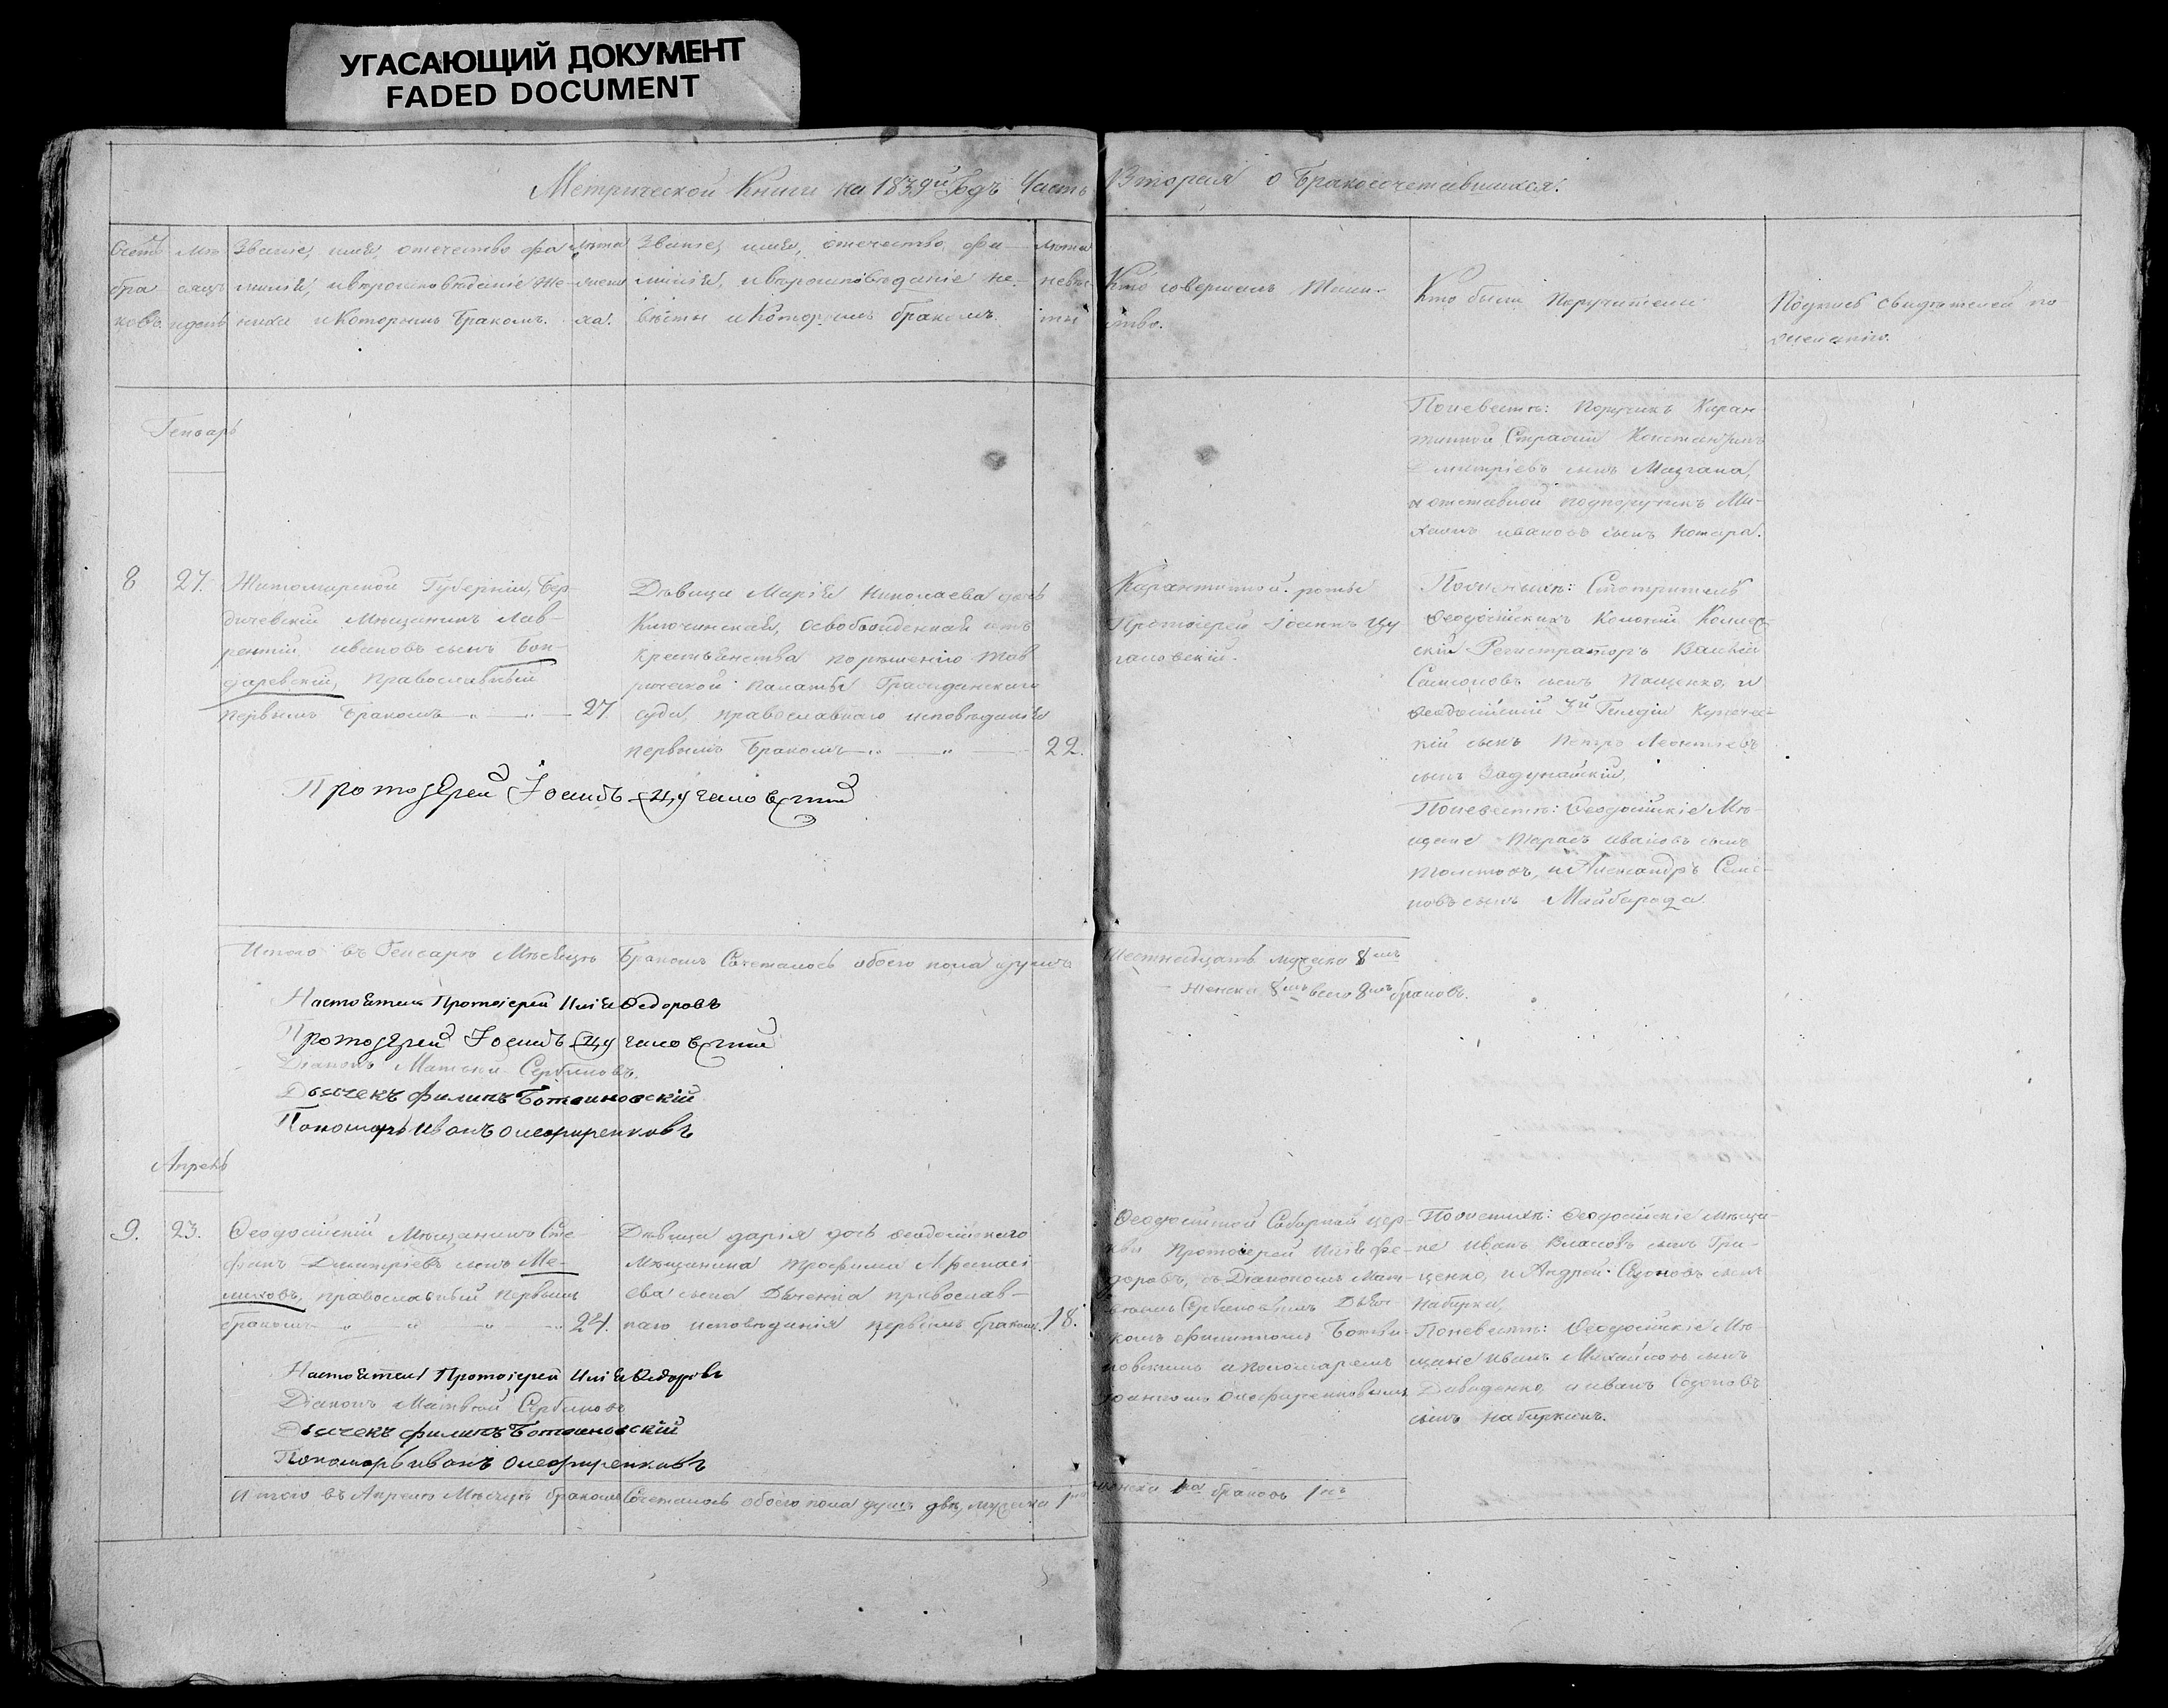 УГАСАЮЩИЙ ДОКУМЕНТ
FADED DOCUMENT
Метрической Книги на 1839й Годъ Часть Вторая о Бракосочетавшихся.
Счетъ бра- ковъ
Мѣ- сяцъ и день
Званіе, имя, отечество, фа-
милія, и вѣроисповѣданіе же-
ниха и которымъ бракомъ.
Лѣта жени- ха.
Званіе, имя, отечество, фа-
милія, и вѣроисповѣданіе не-
вѣсты и которымъ бракомъ.
Лѣта невѣс- ты
Кто совершалъ Таин-
ство.
Кто были Поручители
Подпись свидѣтелей по
желанію.
Генварь
Поневестѣ: Поручикъ Каран-
тинной Стражи Константинъ
Дмитріевъ сынъ Мазгана,
и отставной подпоручикъ Ми-
хаилъ ивановъ сынъ Нотара.
8
27.
Житомирской Губерніи, Бер-
дичевскій Мѣщанинъ Лав-
рентій ивановъ сынъ Бон-
даревскій, православный
первымъ бракомъ
27
Дѣвица Марія Николаева дочь
Ключинская, освобожденная отъ
крестьянства порѣшенію Тав-
рической Палаты Гражданскаго
суда, православнаго исповѣданія
первымъ бракомъ
22.
Карантинной роты
Протоіерей Іоаннъ Цу-
галовскій.
Поженихѣ: Смотритель
Ѳеодосійскихъ Колоній Коллеж-
скій Регистраторъ Василій
Самсоновъ сынъ Пащенко, и
Ѳеодосійскій 3й Гильдіи Купечес-
кій сынъ Петръ Леонтіевъ
сынъ Задунайскій.
Поневестѣ: Ѳеодосійскіе Мѣ-
щане Тарасъ ивановъ сынъ
Толстовъ, и Александръ Семе-
новъ сынъ Майборода.
Протоіерей Іоаннъ Цугаловскій
Итого въ Генварѣ Мѣсяцѣ Бракомъ Сочеталось обоего пола душъ Шестнадцать мужеска 8мь
женска 8мь всего 8мь браковъ.
Настоятель Протоіерей Илія Ѳедоровъ
Протоіерей Іоаннъ Цугаловскій
Діаконъ Матвѣй Сербиновъ.
Дьячекъ филипъ Ботвиновскій
Пономарь Иванъ Олефиренковъ
Апрель
9.
23.
Ѳеодосійскій Мѣщанинъ Сте-
фанъ Димитріевъ сынъ Ме-
лиховъ, православный первымъ
бракомъ
24.
Дѣвица дарія дочь Ѳеодосійскаго
Мѣщанина Трофима Афанасі-
ева сына Дяченка православ-
наго исповѣданія первымъ бракомъ.
18.
Ѳеодосійской Соборной цер-
кви Протоіерей Илія Ѳе-
доровъ, съ Діакономъ Мат-
вѣемъ Сербиновымъ Дьяч-
комъ филиппомъ Ботви-
новскимъ и пономаремъ
іоанномъ Олефиренковымъ
Поженихѣ: Ѳеодосійскіе Мѣща-
не Иванъ Власовъ сынъ Гри-
ценко, и Андрей Созоновъ сынъ
Набирка,
Поневестѣ: Ѳеодосійскіе Мѣ-
щане Иванъ Михайловъ сынъ
Давиденко, и иванъ Созоновъ
сынъ набиркинъ.
Настоятель Протоіерей Илія Ѳедоровъ
Діаконъ Матвѣй Сербиновъ
Дьячекъ филипъ Ботвиновскій
Пономарь иванъ Олефиренковъ
Итого въ Апрелѣ Мѣсяцѣ бракомъ Сочеталось обоего пола душъ двѣ, мужеска 1нъ женска 1на браковъ 1нъ